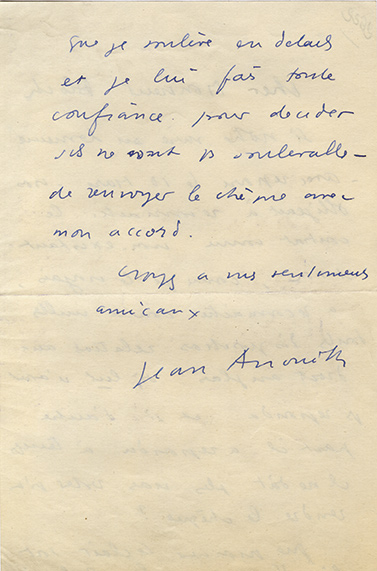 que je soulève en détails
et je lui fais toute
confiance. pour décider
s'ils ne sont pas
de renvoyer le chèque avec
mon accord.
Croyez a mes sentiments
amicaux
Jean Anouilh